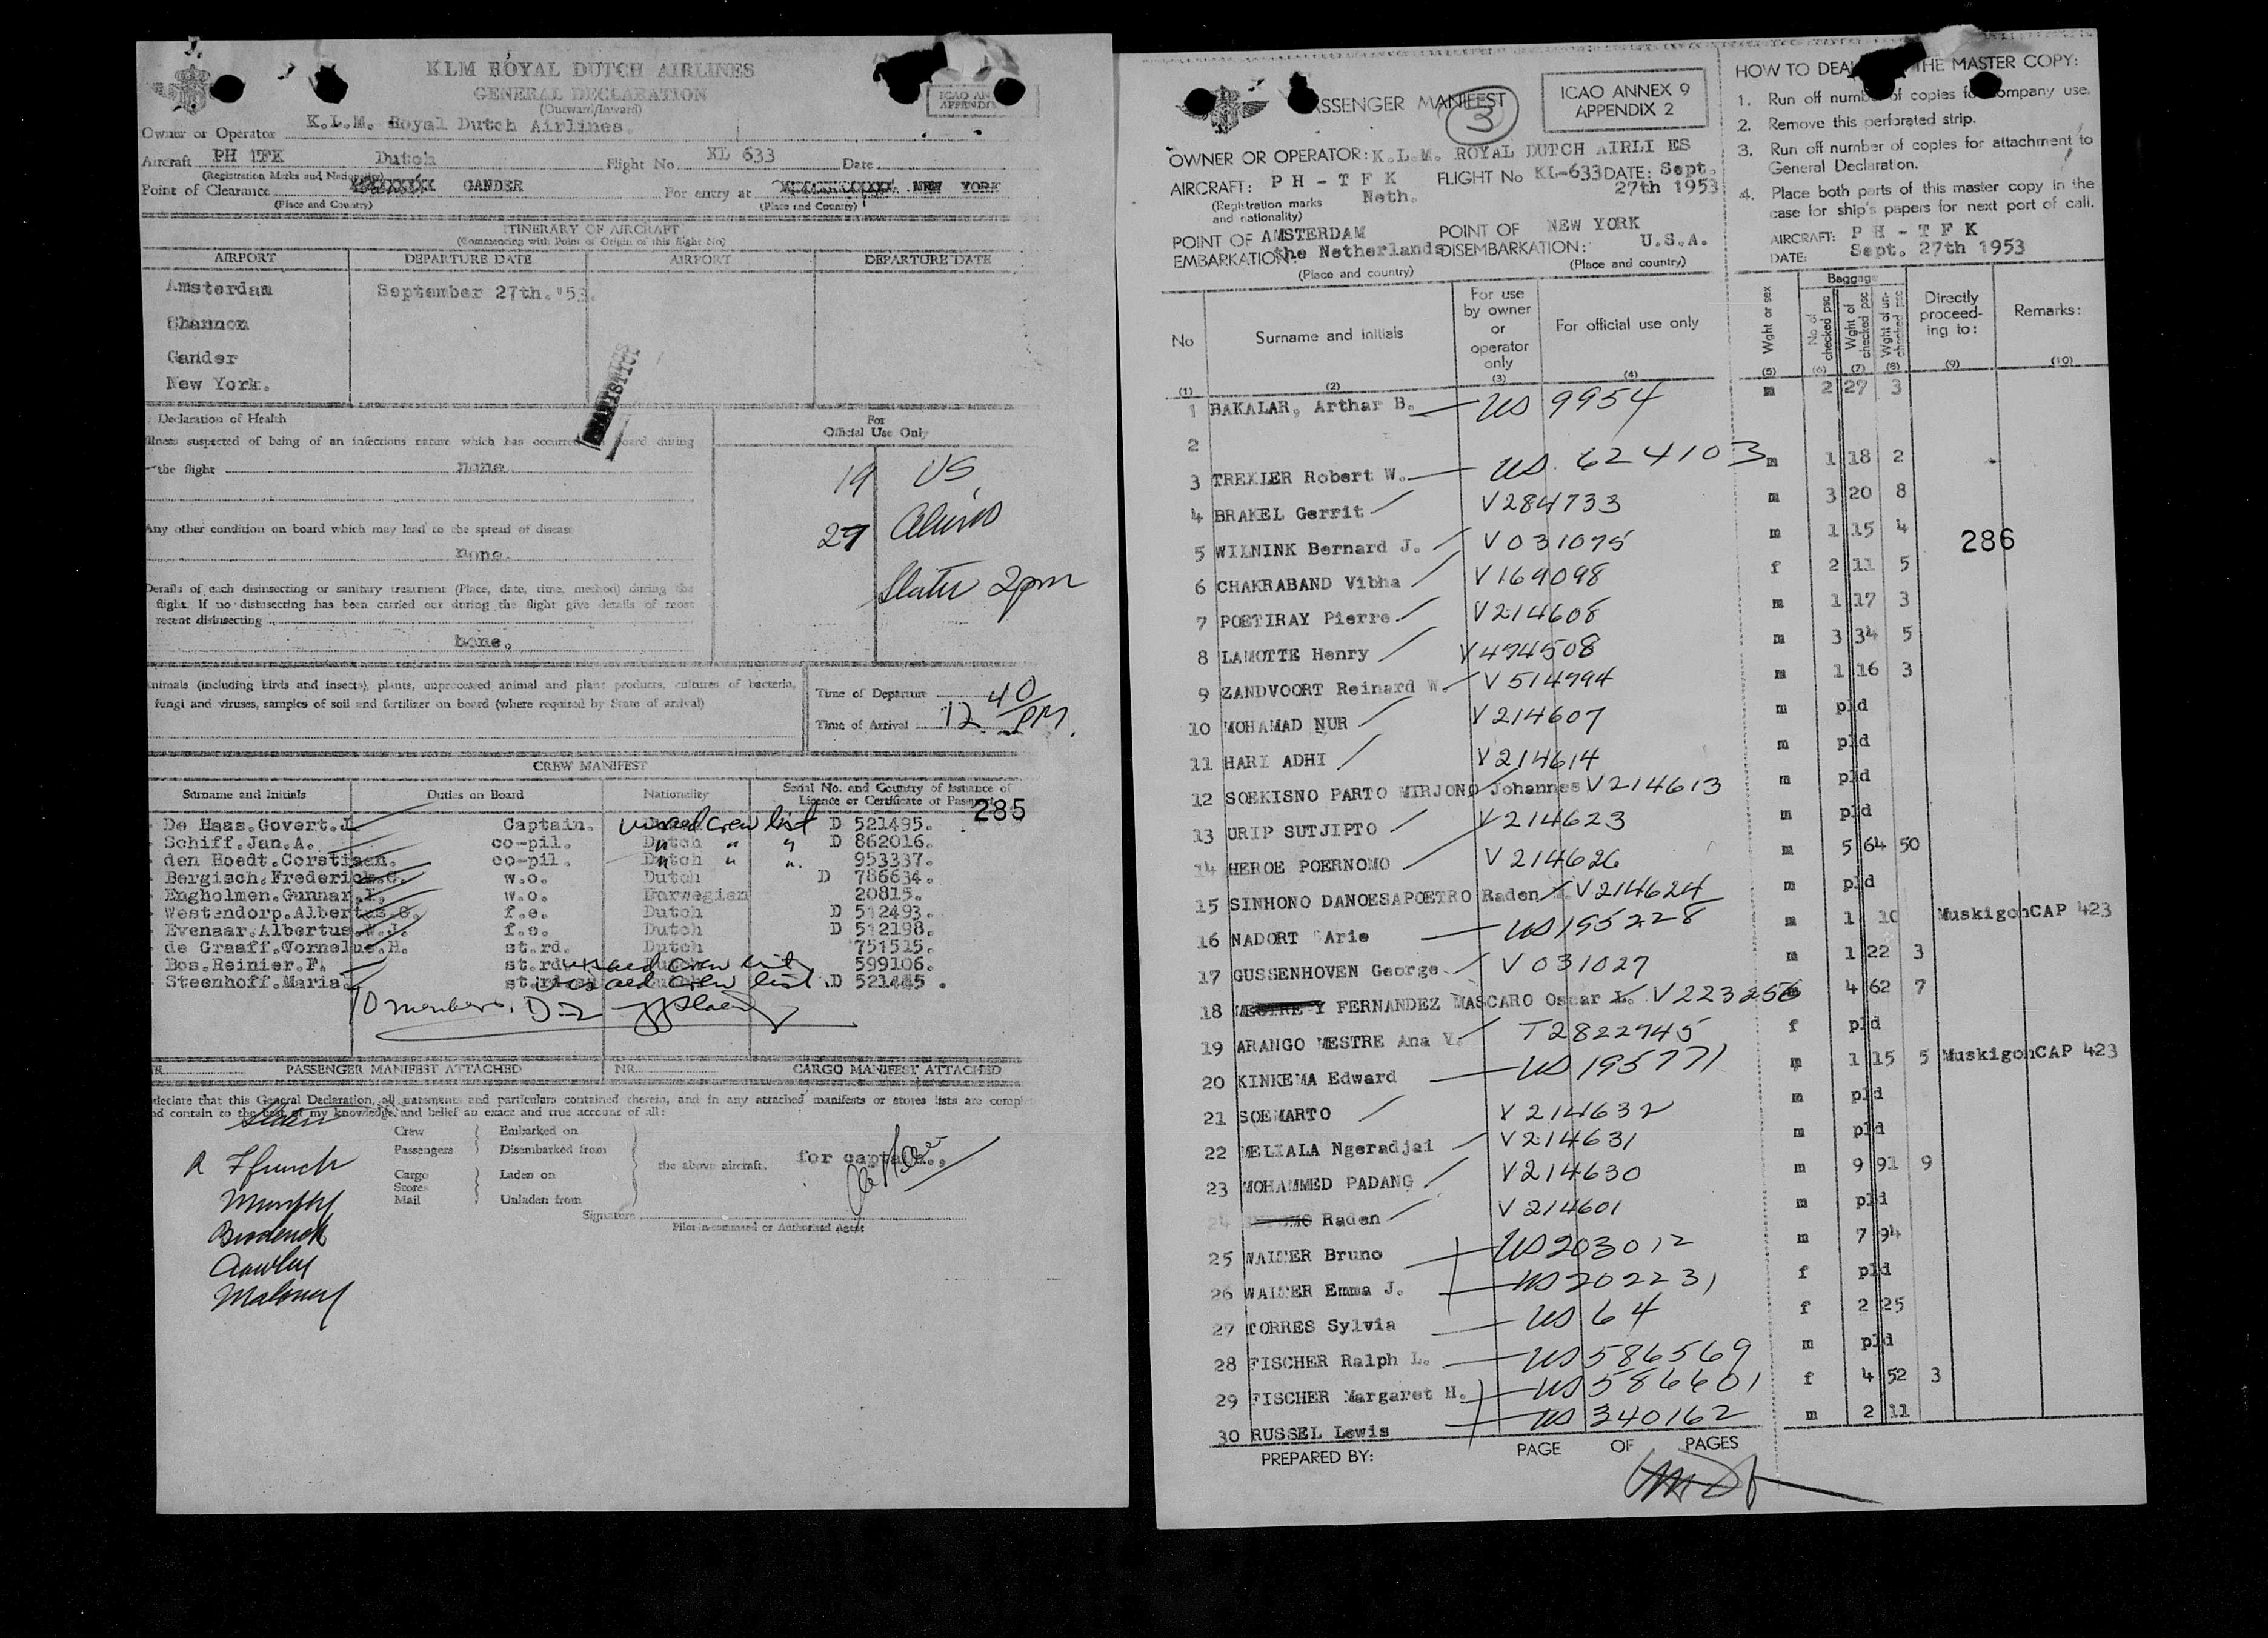 KLM ROYAL DUTCH AIRLINES
GENERAL DECLARATION
(Outward/Inward)
ICAO AN
APPENDIX
Owner or Operator K.L.M. Royal Dutch Airlines.
Aircraft PH TFK Dutch Flight No. KL 633 Date
(Registration Marks and Nationality)
Point of Clearance GANDER For entry at NEW YORK
(Place and Country) (Place and Country)
ITINERARY OF AIRCRAFT
(Commencing with Point of Origin of this flight No)
AIRPORT DEPARTURE DATE AIRPORT DEPARTURE DATE
Amsterdam September 27th.'53.
Shannon
Gander
New York.
Declaration of Health For
Official Use Only
illness suspected of being of an infectious nature which has occurred board during
the flight none
19 US
Any other condition on board which may lead to the spread of disease
none.
27 Aliens
Slater 2pm
Details of each disinsecting or sanitary treatment (Place, date, time, method) during the
flight. If no disinsecting has been carried out during the flight give details of most
recent disinsecting
none.
Animals (including birds and insects), plants, unprocessed animal and plant products, cultures of bacteria,
fungi and viruses, samples of soil and fertilizer on board (where required by State of arrival)
Time of Departure
Time of Arrival 12 40 PM.
CREW MANIFEST
Surname and Initials Duties on Board Nationality Serial No. and Country of Issuance of
Licence or Certificate or Passport
285
De Haas.Govert.J. Captain. visaed crew list D 521495.
Schiff.Jan.A. co-pil. Dutch " " D 862016.
den Hoedt.Corstiaan. co-pil. Dutch " " 953337.
Bergisch.Frederick.C. w.o. Dutch D 786634.
Engholmen.Gunnar.I. w.o. Norwegian 20815.
Westendorp.Albertus.G. f.e. Dutch D 512493.
Evenaar.Albertus.W.J. f.e. Dutch D 512198.
de Graaff.Cornelus.H. st.rd. Dutch 751515.
Bos.Reinier.F. st.rd. visaed crew list 599106.
Steenhoff.Maria. visaed crew list D 521445.
10 members. D-2
NR. PASSENGER MANIFEST ATTACHED NR. CARGO MANIFEST ATTACHED
declare that this General Declaration, all statements and particulars contained therein, and in any attached manifests or stores lists are compl
nd contain to the best of my knowledge and belief an exact and true account of all:
Crew Embarked on
Passengers Disembarked from
the above aircraft. for captain.,
Cargo Laden on
Stores
Mail Unladen from
Signature
Pilot in command or Authorised Agent
Slater
R Ffrench
Murphy
Broderick
Crowley
Maloney
PASSENGER MANIFEST
3
ICAO ANNEX 9
APPENDIX 2
OWNER OR OPERATOR: K.L.M. ROYAL DUTCH AIRLI ES
AIRCRAFT: PH - T F K FLIGHT No KL-633 DATE: Sept.
27th 1953
(Registration marks and nationality) Neth.
POINT OF EMBARKATION: AMSTERDAM the Netherlands POINT OF DISEMBARKATION: NEW YORK U.S.A.
(Place and country) (Place and country)
HOW TO DEAL THE MASTER COPY:
1. Run off number of copies for company use.
2. Remove this perforated strip.
3. Run off number of copies for attachment to
General Declaration.
4. Place both parts of this master copy in the
case for ship's papers for next port of call.
AIRCRAFT: P H - T F K
DATE: Sept. 27th 1953
No Surname and initials For use by owner or operator only For official use only Wght or sex Baggage No of checked psc Wght of checked psc Wght of un-checked psc Directly proceed-ing to: Remarks:
(1) (2) (3) (4) (5) (6) (7) (8) (9) (10)
1 BAKALAR, Arthur B. US 9954 m 2 27 3
2
3 TREXLER Robert W. US. 624103 m 1 18 2
4 BRAKEL Gerrit V284733 m 3 20 8
5 WILNINK Bernard J. V031075 m 1 15 4
286
6 CHAKRABAND Vibha V169098 f 2 11 5
7 POETIRAY Pierre V214608 m 1 17 3
8 LAMOTTE Henry V474508 m 3 34 5
9 ZANDVOORT Reinard W. V514994 m 1 16 3
10 MOHAMAD NUR V214607 m pld
11 HARI ADHI V214614 m pld
12 SOEKISNO PARTO MIRJONO Johannes V214613 m pld
13 URIP SUTJIPTO V214623 m pld
14 HEROE POERNOMO V214626 m 5 64 50
15 SINHONO DANOESAPOETRO Raden V214624 m pld
16 NADORT Arie US195228 m 1 10 MuskigonCAP 423
17 GUSSENHOVEN George. V031027 m 1 22 3
18 MESTRE Y FERNANDEZ MASCARO Oscar L. V223256 m 4 62 7
19 ARANGO MESTRE Ana V. T2822945 f pld
20 KINKEMA Edward US195771 m 1 15 5 MuskigonCAP 423
21 SOEMARTO V214632 m pld
22 MELIALA Ngeradjai V214631 m pld
23 MOHAMMED PADANG V214630 m 9 91 9
24 Raden V214601 m pld
25 WALTER Bruno US203012 m 7 94
26 WALTER Emma J. US202231 f pld
27 TORRES Sylvia US 64 f 2 25
28 FISCHER Ralph L. US586569 m pld
29 FISCHER Margaret H. US586601 f 4 52 3
30 RUSSEL Lewis US 340162 m 2 11
PREPARED BY: PAGE OF PAGES